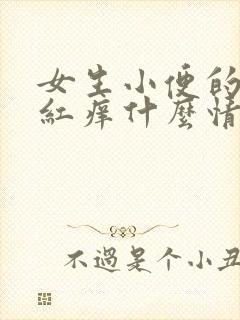 女生小便的
紅痒什麼情
不過是个小丑